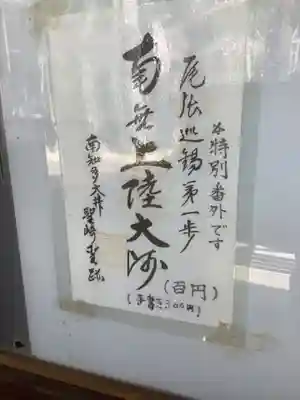 本特別番外です
尾張巡錫第一歩
南無上陸大師
(百円)
(手書き300円)
南知多大井聖崎霊跡